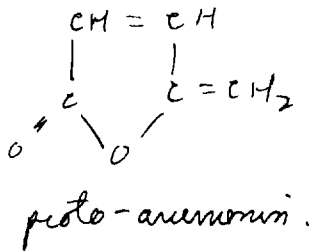 CH = CH
C C = CH2
O O
proto-anemonin.